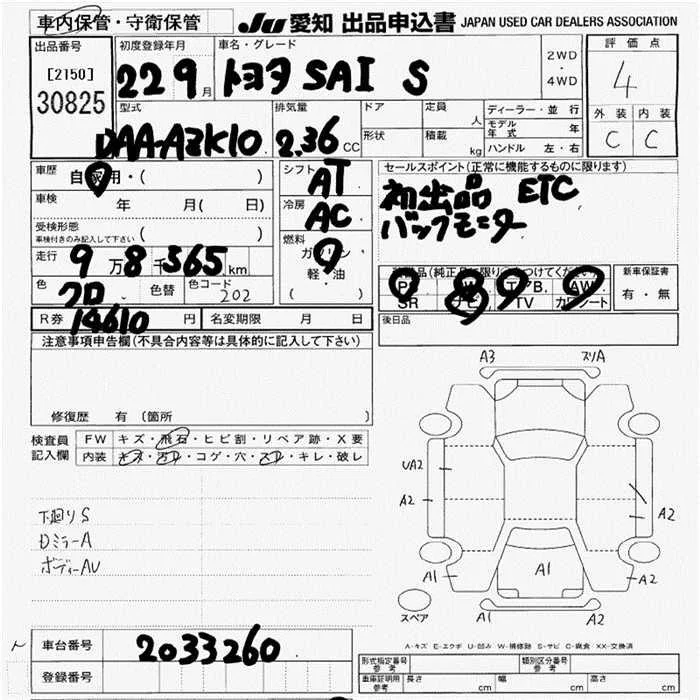 車内保管・守衛保管 JU 愛知 出品申込書 JAPAN USED CAR DEALERS ASSOCIATION
出品番号 初度登録年月 車名・グレード 評価点
[2150] 22 9月 トヨタ SAI S 2WD・4WD 4
30825
型式 排気量 ドア 定員 人 ディーラー・並行 外装 内装
DAA-AZK10 2.36 CC 形状 積載 kg モデル年式 年 C C
ハンドル 左・右
車歴 自家用・( ) シフト AT セールスポイント(正常に機能するものに限ります)
車検 年 月( 日) 冷房 AC 初出品 ETC
受検形態 車検付きのみ記入して下さい ( ) 燃料 ガソリン バックモニター
走行 9万8千365km 軽・油
( )
色 クロ 色替 色コード 202
SR ナビ TV カワシート
新車保証書 有・無
R券 14610円 名変期限 月 日 後日品
注意事項申告欄(不具合内容等は具体的に記入して下さい)
修復歴 有 〔箇所
検査員記入欄 FW キズ・飛石・ヒビ割・リペア跡・X要
内装 キズ・汚レ・コゲ・穴・スレ・キレ・破レ
A3 スリA
UA2
A2 A2
A1 A1 A2
A1 A2
スペア
下廻りS
DミラーA
ボディーAU
A-キズ E-エクボ U-凹み W-補修跡 S-サビ C-腐食 XX-交換済
車台番号 2033260
登録番号
形式指定番号 参考 類別区分番号 参考
車庫証明用 参考 長さ cm 幅 cm 高さ cm